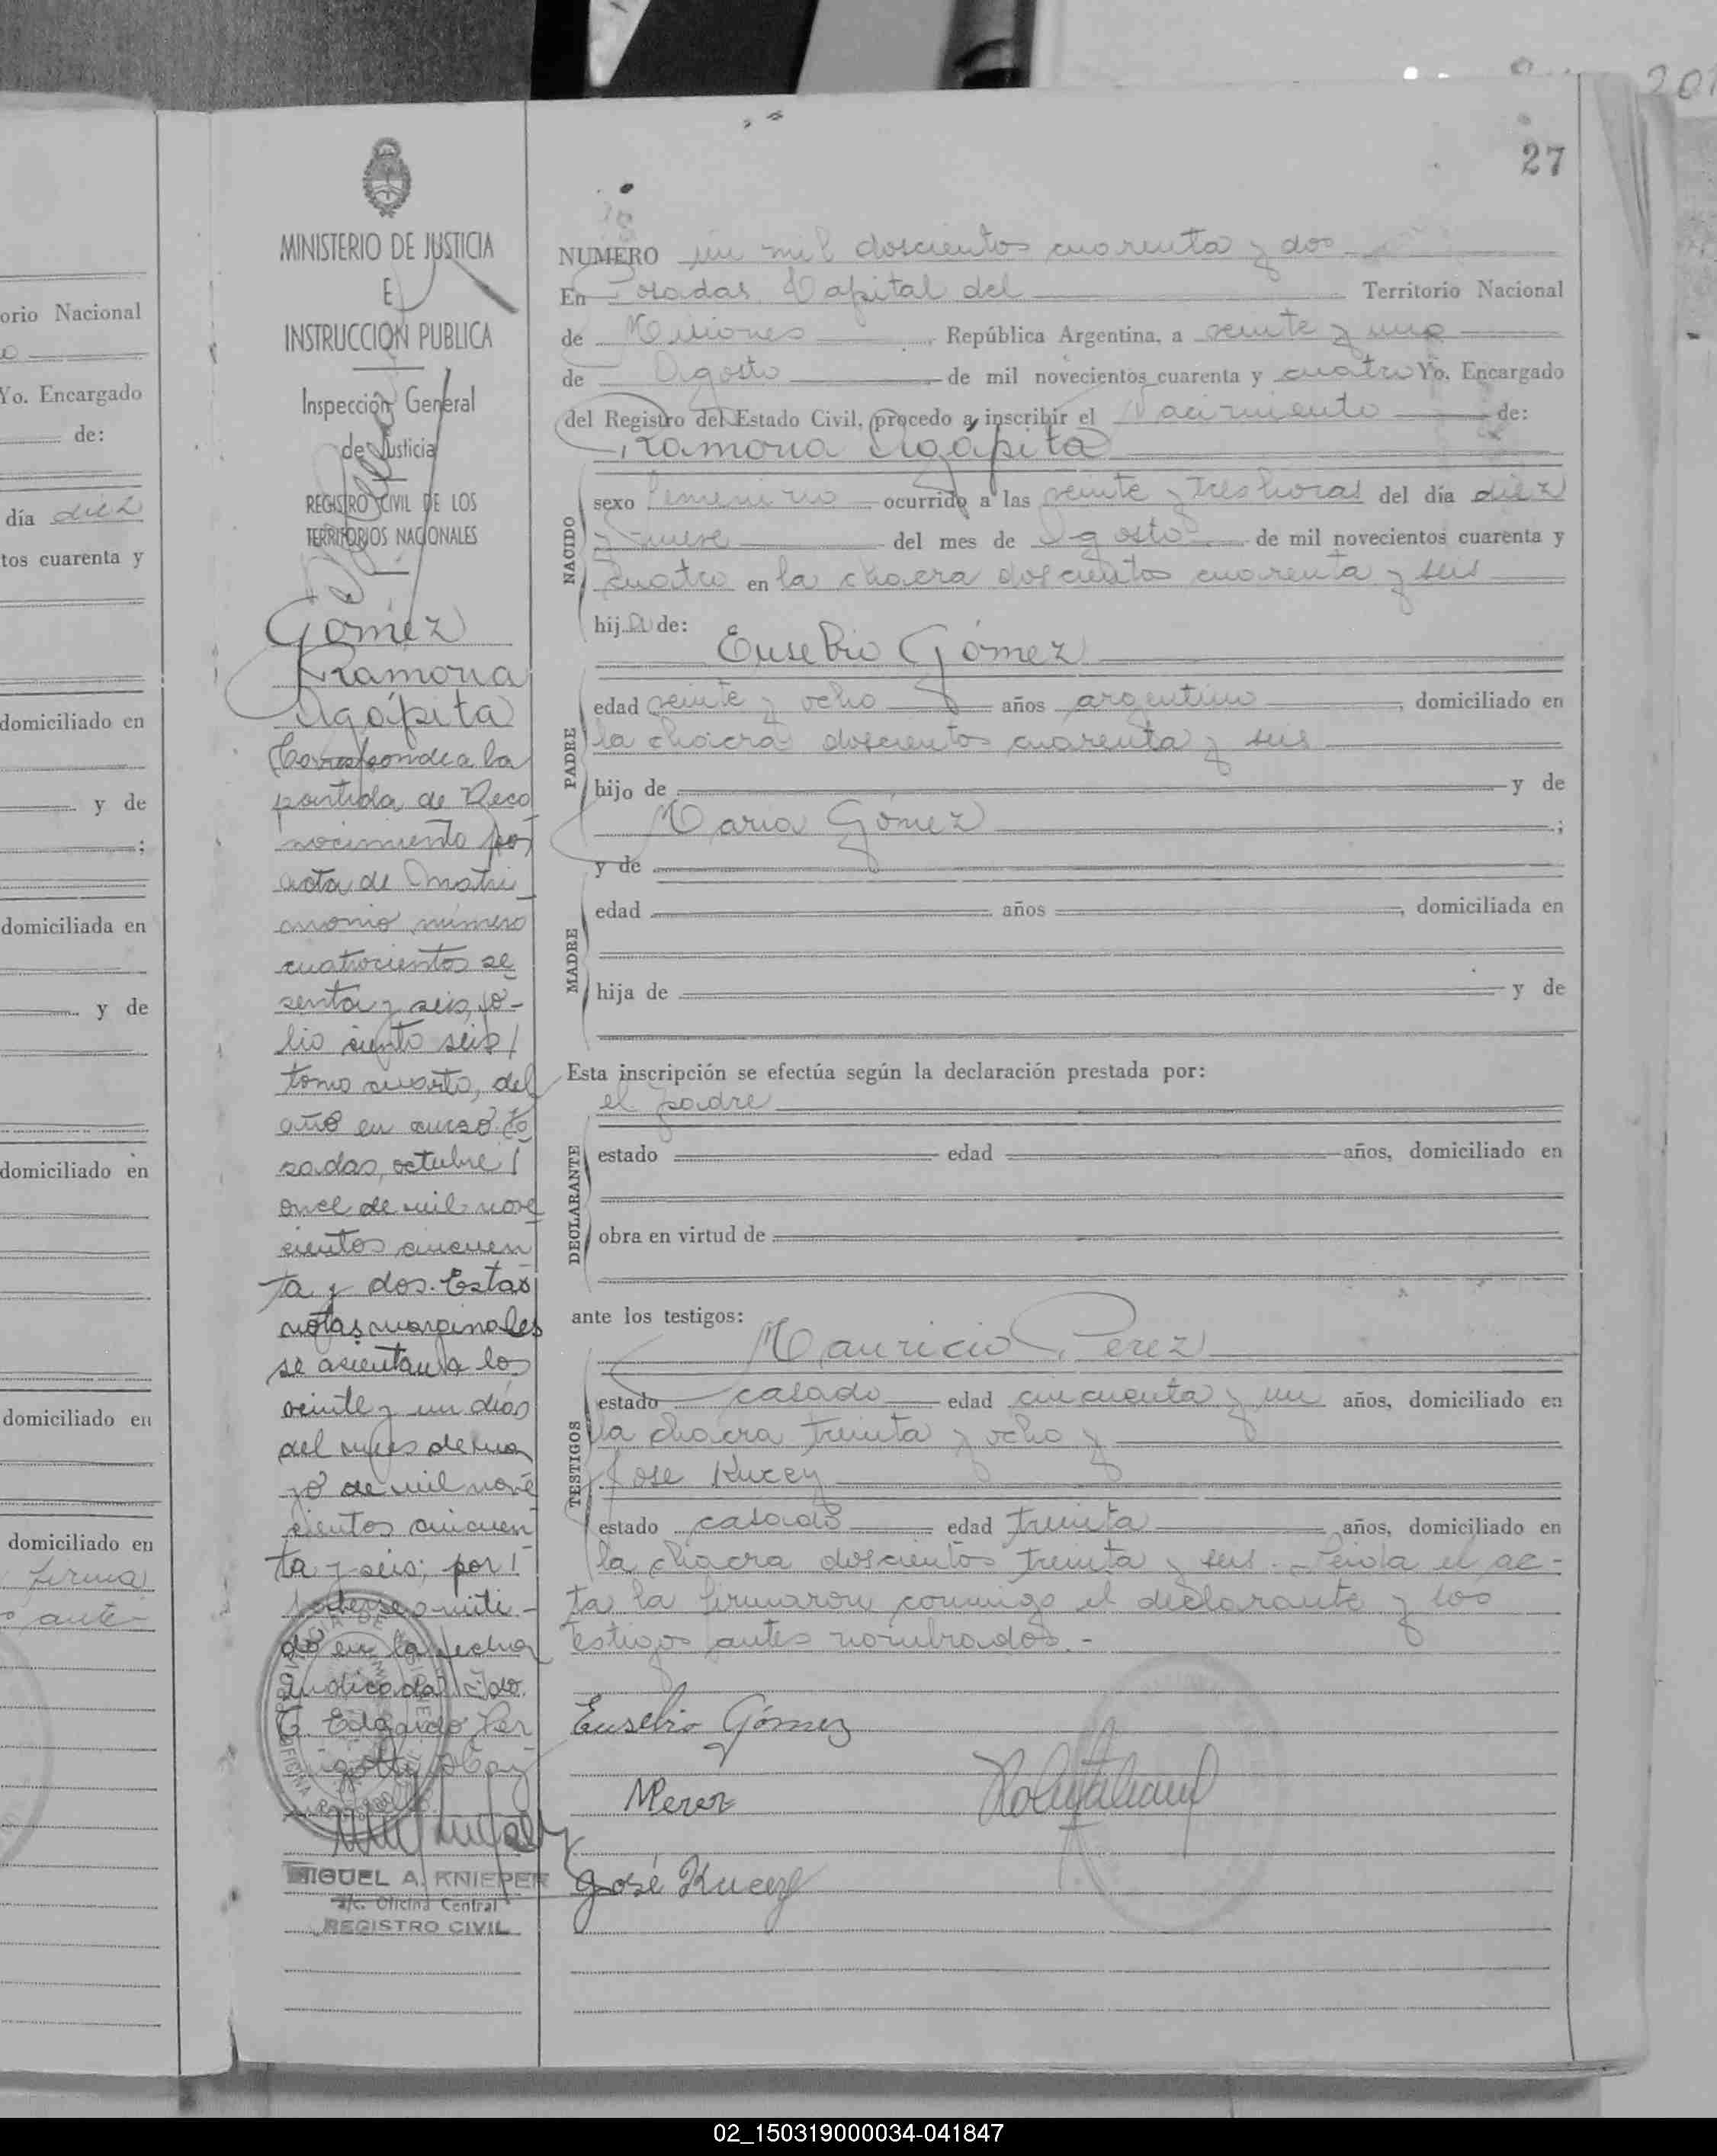 201
27
MINISTERIO DE JUSTICIA
E
INSTRUCCION PUBLICA
Inspección General
de Justicia
REGISTRO CIVIL DE LOS
TERRITORIOS NACIONALES
Gómez
Ramona
Agápita
Corresponde a la
partida de Reco
nocimiento por
acta de Matri
monio número
cuatrocientos se
senta y seis, fo-
lio ciento seis
tomo cuarto, del
año en curso. Po
sadas, octubre
once de mil nove
cientos cincuen
ta y dos. Estas
notas marginales
se asientan a los
veinte y un días
del mes de ma
yo de mil nove
cientos cincuen
ta y seis; por
haberse omiti-
do en la fecha
indicada
MIGUEL A. KNIEPER
a/c. Oficina Central
REGISTRO CIVIL
NUMERO un mil doscientos cuarenta y dos
En Posadas Capital del Territorio Nacional
de Misiones, República Argentina, a veinte y uno
de Agosto de mil novecientos cuarenta y cuatro Yo, Encargado
del Registro del Estado Civil, procedo a inscribir el Nacimiento de:
Ramona Agápita
NACIDO
sexo femenino ocurrido a las veinte y tres horas del día diez
y nueve del mes de Agosto de mil novecientos cuarenta y
cuatro en la chacra doscientos cuarenta y seis
hija de:
Eusebio Gómez
PADRE
edad veinte y ocho años argentino, domiciliado en
la chacra doscientos cuarenta y seis
hijo de y de
Maria Gómez;
y de
MADRE
edad años, domiciliada en
hija de y de
Esta inscripción se efectúa según la declaración prestada por:
el padre
DECLARANTE
estado edad años, domiciliado en
obra en virtud de
ante los testigos:
Mauricio Perez
TESTIGOS
estado casado edad cincuenta y un años, domiciliado en
la chacra treinta y ocho y
Jose Kucey
estado casado edad treinta años, domiciliado en
la chacra doscientos treinta y seis. Leida el ac-
ta la firmaron conmigo el declarante y los
testigos antes nombrados.-
Eusebio Gómez
MPerez
José Kucey
orio Nacional
Yo. Encargado
de:
día diez
tos cuarenta y
domiciliado en
y de
;
domiciliada en
y de
domiciliado en
domiciliado en
domiciliado en
firma
ante-
02_150319000034-041847